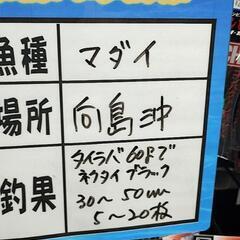 魚種 マダイ
場所 向島沖
釣果 タイラバ60gで
ネクタイ ブラック
30〜50cm
5〜20枚